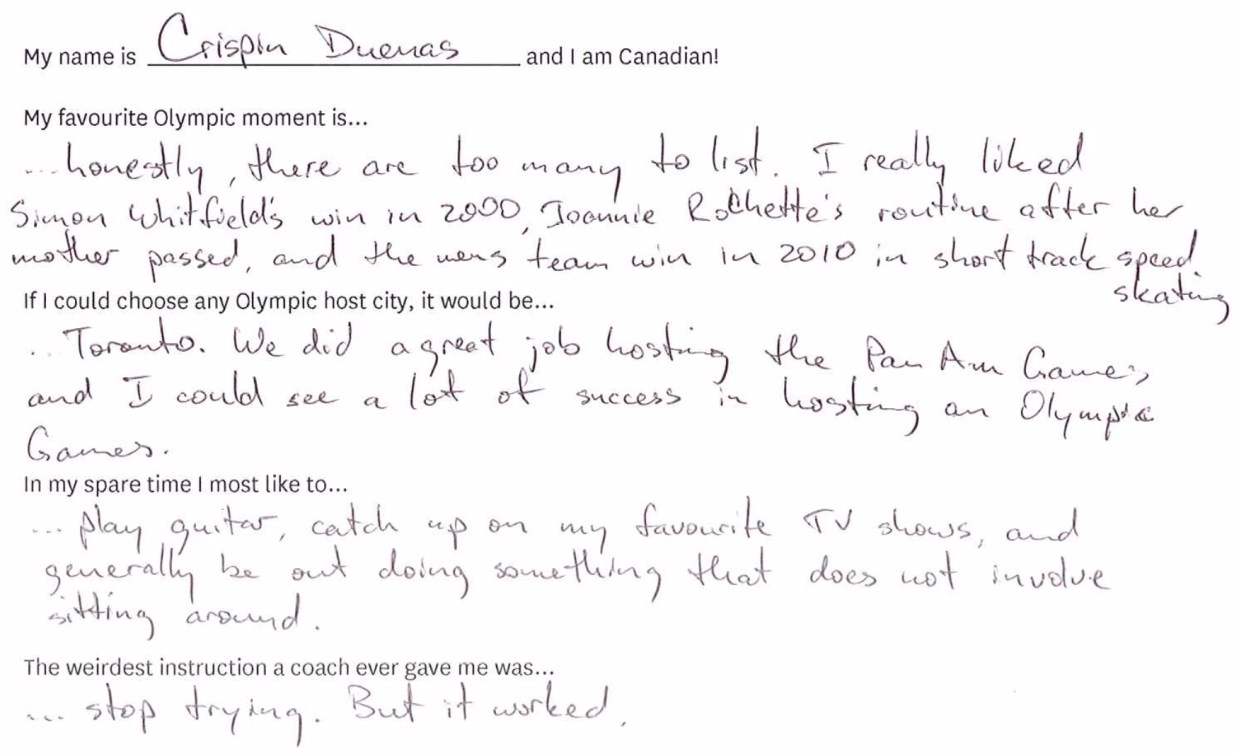 My name is Crispin Duenas and I am Canadian!
My favourite Olympic moment is...
...honestly, there are too many to list. I really liked
Simon Whitfield's win in 2000, Joannie Rochette's routine after her
mother passed, and the mens team win in 2010 in short track speed
skating
If I could choose any Olympic host city, it would be...
... Toronto. We did a great job hosting the Pan Am Games,
and I could see a lot of success in hosting an Olympic
Games.
In my spare time I most like to...
... play guitar, catch up on my favourite TV shows, and
generally be out doing something that does not involve
sitting around.
The weirdest instruction a coach ever gave me was...
... stop trying. But it worked.